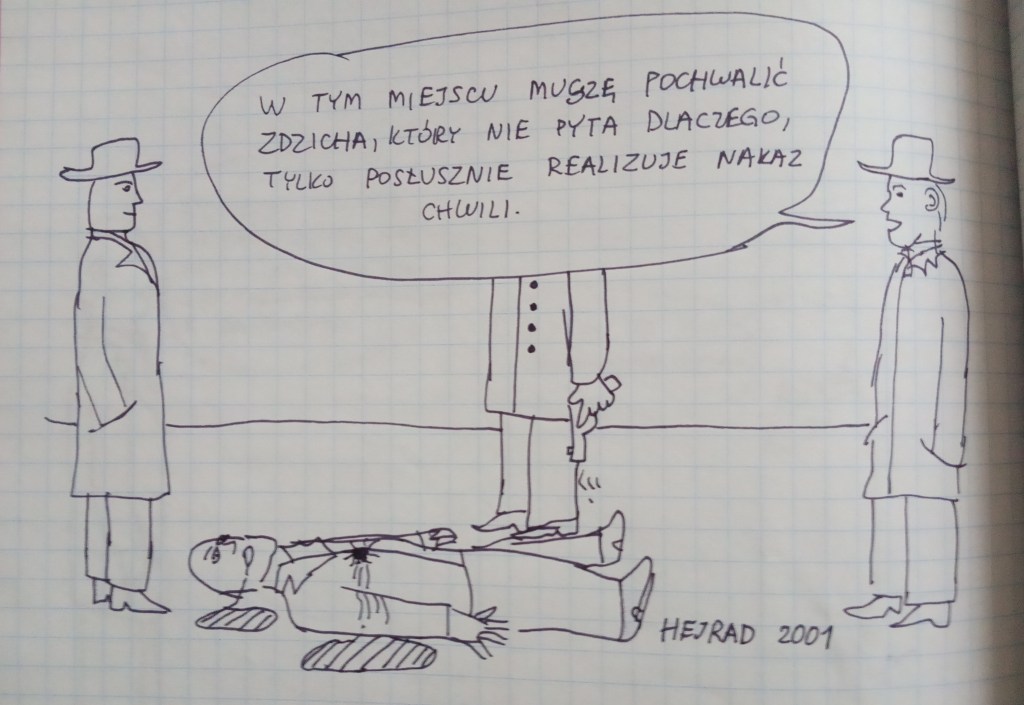 W TYM MIEJSCU MUSZĘ POCHWALIĆ
ZDZICHA, KTÓRY NIE PYTA DLACZEGO,
TYLKO POSŁUSZNIE REALIZUJE NAKAZ
CHWILI.
HEJRAD 2001